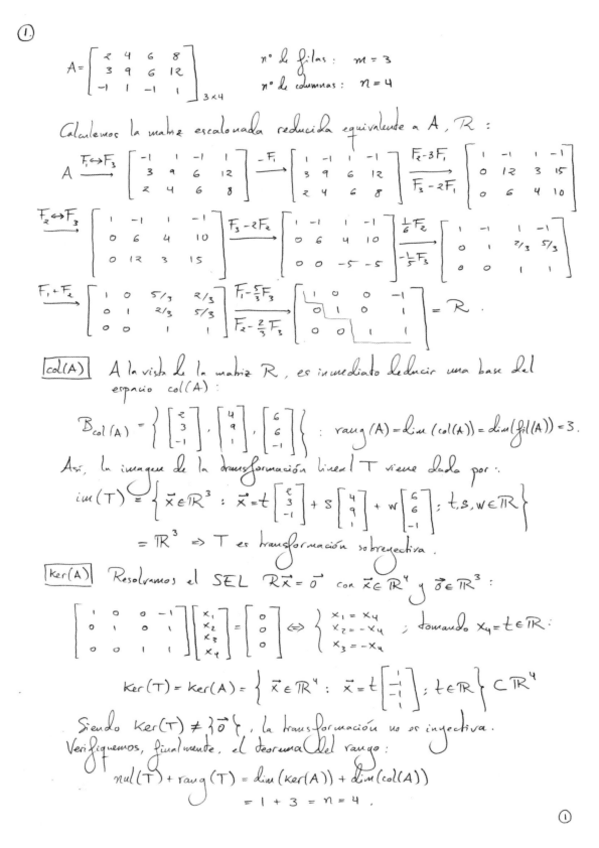 1.
A = [2 4 6 8; 3 9 6 12; -1 1 -1 1] 3x4
nº de filas: m = 3
nº de columnas: n = 4
Calculemos la matriz escalonada reducida equivalente a A, R:
A F1↔F3 → [-1 1 -1 1; 3 9 6 12; 2 4 6 8] -F1 → [1 -1 1 -1; 3 9 6 12; 2 4 6 8] F2-3F1 F3-2F1 → [1 -1 1 -1; 0 12 3 15; 0 6 4 10]
F2↔F3 → [1 -1 1 -1; 0 6 4 10; 0 12 3 15] F3-2F2 → [1 -1 1 -1; 0 6 4 10; 0 0 -5 -5] 1/6 F2 -1/5 F3 → [1 -1 1 -1; 0 1 2/3 5/3; 0 0 1 1]
F1+F2 → [1 0 5/3 2/3; 0 1 2/3 5/3; 0 0 1 1] F1-5/3F3 F2-2/3F3 → [1 0 0 -1; 0 1 0 1; 0 0 1 1] = R.
col(A) A la vista de la matriz R, es inmediato deducir una base del
espacio col(A):
B col(A) = { [2 3 -1], [4 9 1], [6 6 -1] } : rang(A) = dim(col(A)) = dim(fil(A)) = 3.
Así, la imagen de la transformación lineal T viene dada por:
im(T) = { x⃗ ∈ ℝ³ : x⃗ = t [2 3 -1] + s [4 9 1] + w [6 6 -1] ; t, s, w ∈ ℝ }
= ℝ³ ⇒ T es transformación sobreyectiva.
ker(A) Resolvamos el SEL Rx⃗ = o⃗ con x⃗ ∈ ℝ⁴ y o⃗ ∈ ℝ³ :
[1 0 0 -1; 0 1 0 1; 0 0 1 1] [x1 x2 x3 x4] = [0 0 0] ⇔ { x1 = x4 x2 = -x4 x3 = -x4 ; tomando x4 = t ∈ ℝ:
Ker(T) = Ker(A) = { x⃗ ∈ ℝ⁴ : x⃗ = t [1 -1 -1 1] ; t ∈ ℝ } ⊂ ℝ⁴
Siendo Ker(T) ≠ {o⃗}, la transformación no es inyectiva.
Verifiquemos, finalmente, el teorema del rango:
nul(T) + rang(T) = dim(ker(A)) + dim(col(A))
= 1 + 3 = n = 4.
1